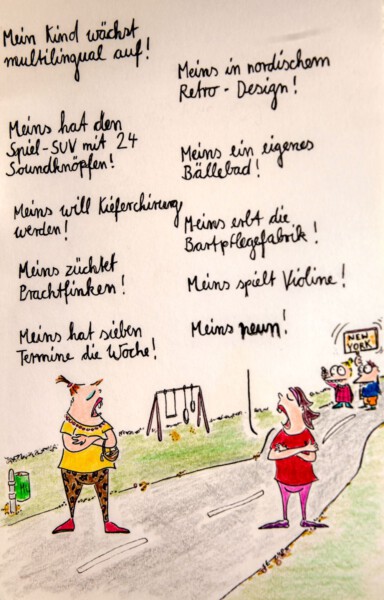 Mein Kind wächst
multilingual auf!
Meins in nordischem
Retro-Design!
Meins hat den
Spiel-SUV mit 24
Soundknöpfen!
Meins ein eigenes
Bällebad!
Meins will Kieferchirurg
werden!
Meins erbt die
Bartpflegefabrik!
Meins züchtet
Prachtfinken!
Meins spielt Violine!
Meins hat sieben
Termine die Woche!
Meins neun!
NEW
YORK